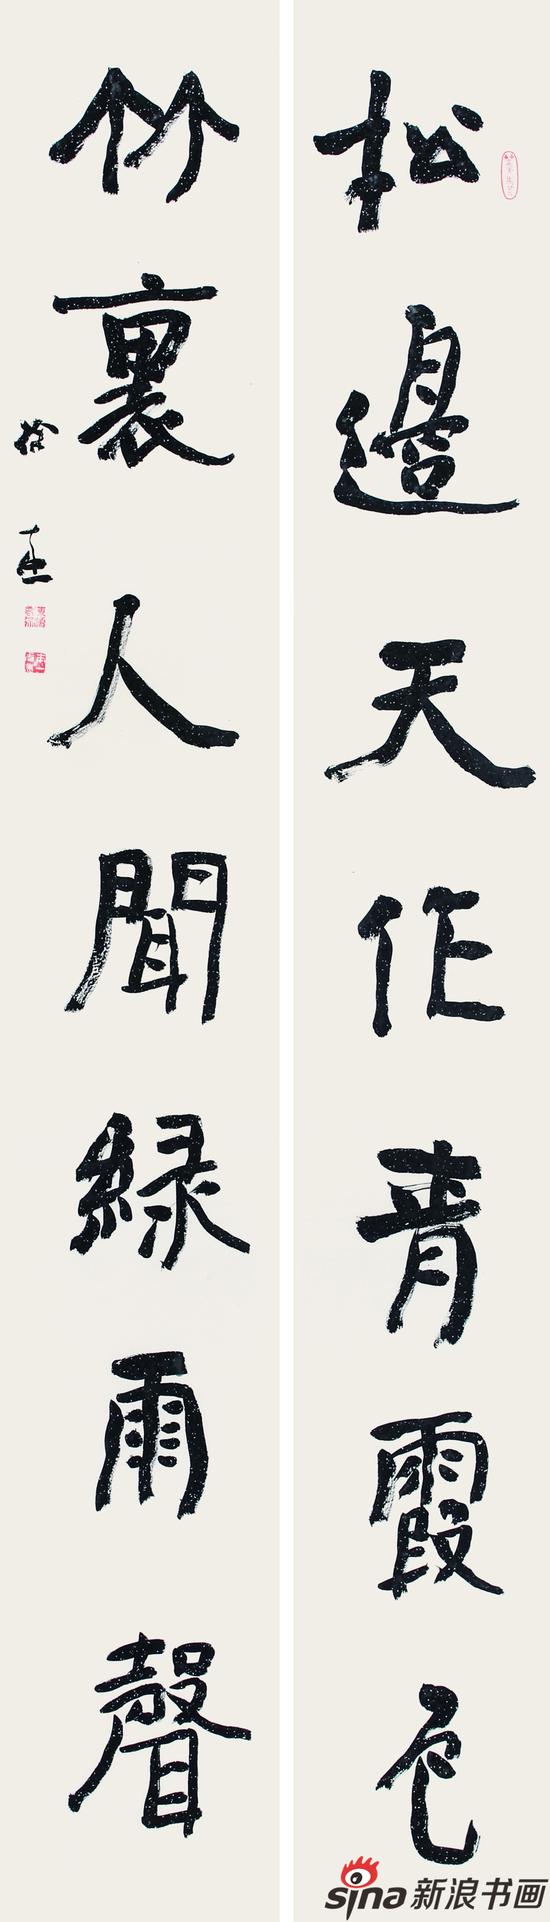 松邊天作青霞色
竹裏人聞緑雨聲
sina新浪书画